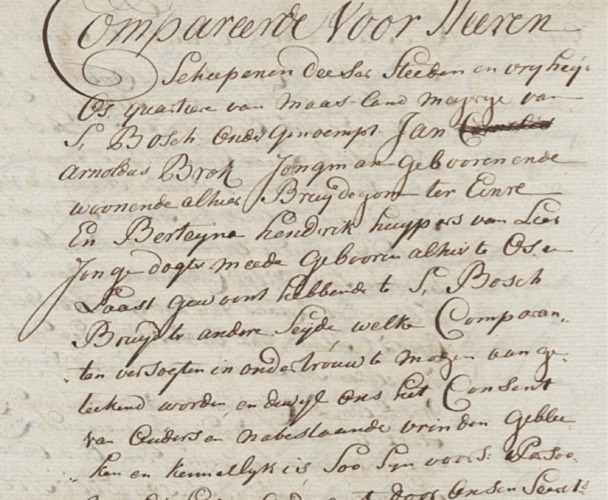 Compareerde Voor Heeren
Scheepenen deeser Steede en vryhey:
Os quartiere van Maas-land Mayerye van
S. Bosch, onderGenoempt Jan
Arnoldus Brok Jongman gebooren ende
woonende alhier Bruydegom ter Eenre
En Berteyna hendrik kuypers van Lier
Jonge dogter meede Gebooren alhier te Os en
Laast gewoont hebbende te S. Bosch
Bruyd te andere seyde welke Comparan-
ten versogten in ondertrouw te mogen aange-
teekend worden, en dewyl ons het Consent
van Ouders en nabestaande vrinden Geblee
ken en kennelyk is, Soo Syn voors: Persoo